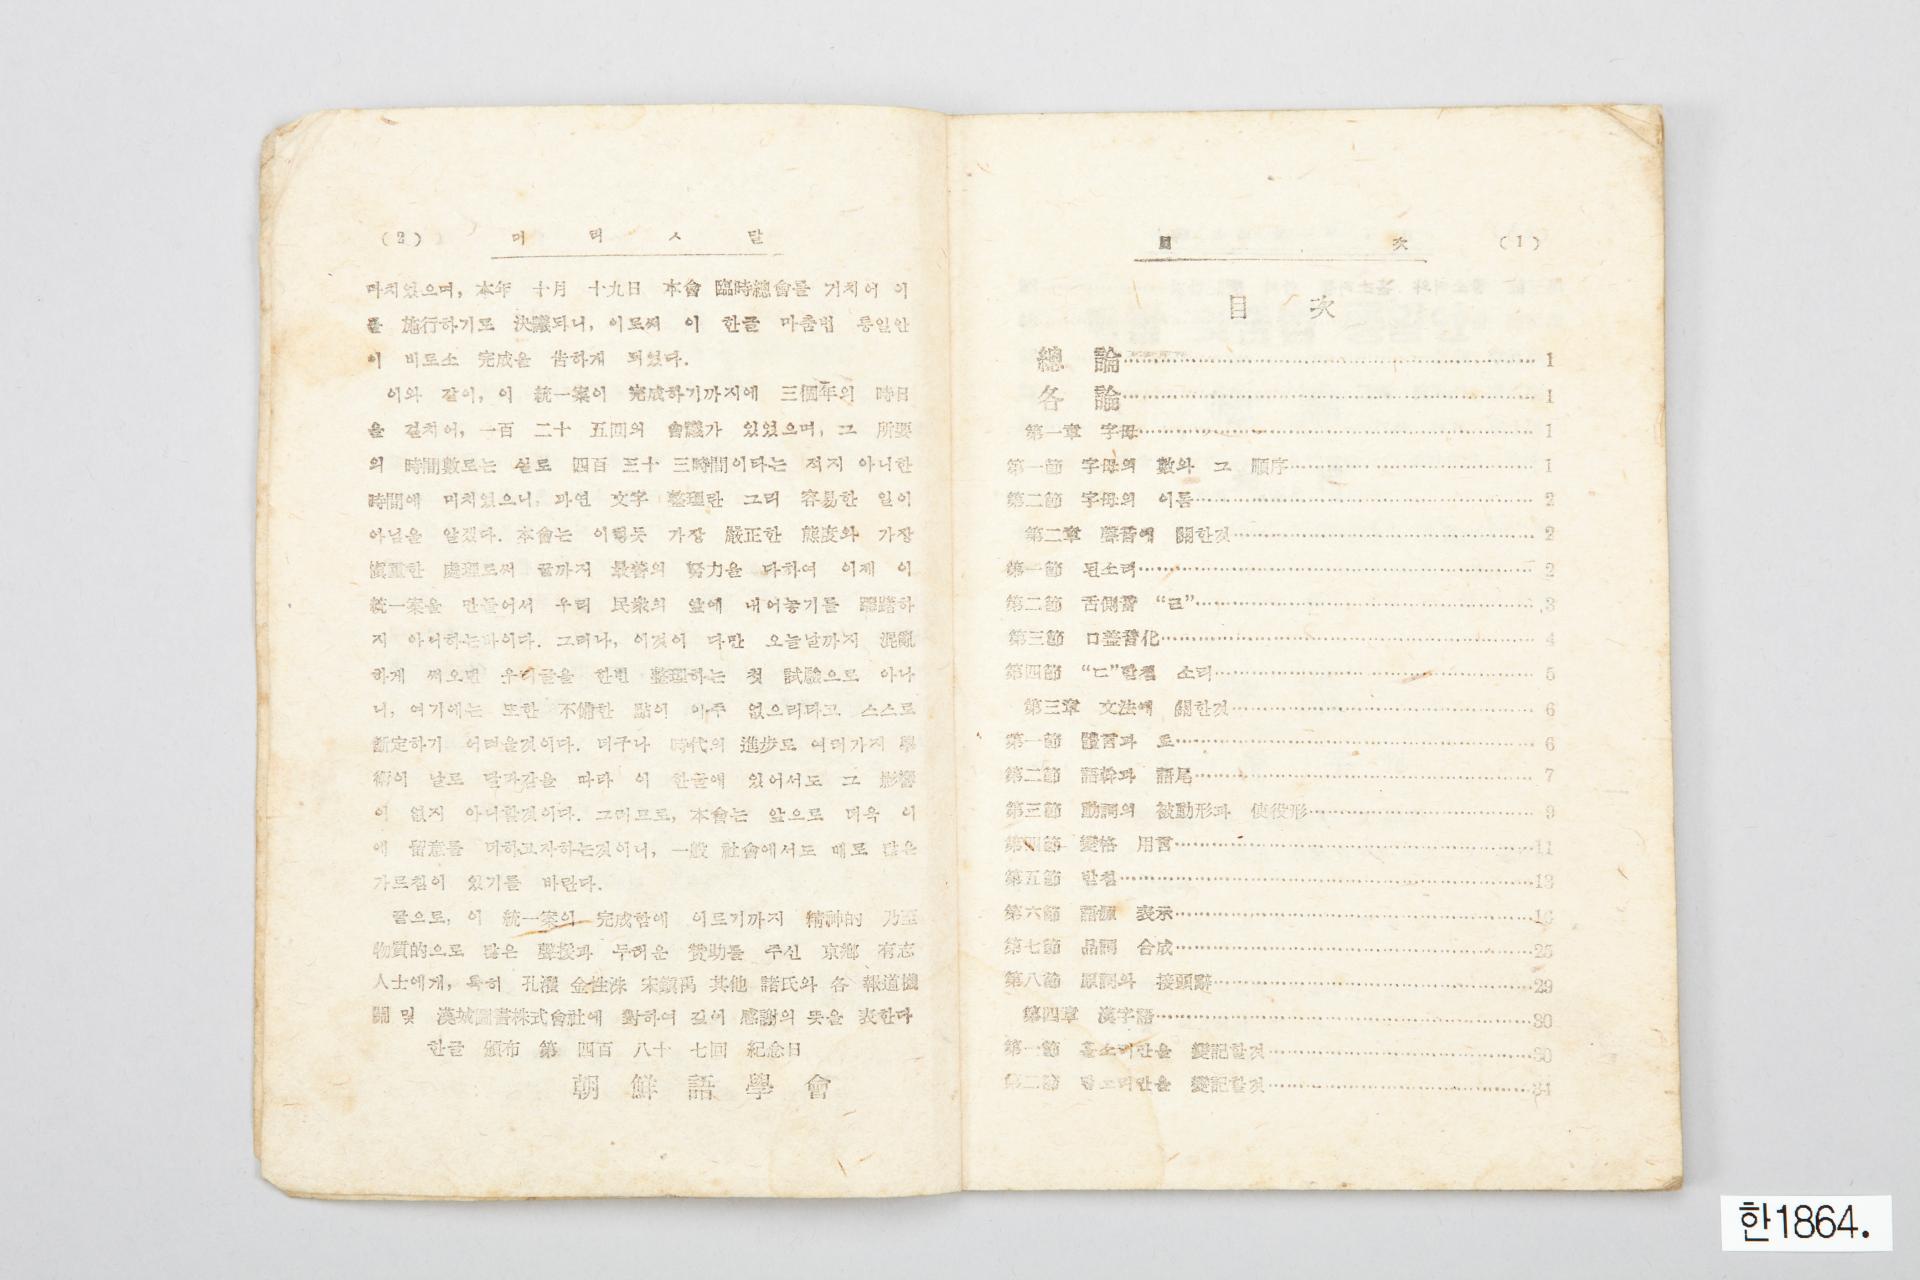 (2) 머 리 ㅅ 말
마치었으며, 本年 十月 十九日 本會 臨時總會를 거치어 이
를 施行하기로 決議되니, 이로써 이 한글 마춤법 통일안
이 비로소 完成을 告하게 되었다.
이와 같이, 이 統一案이 完成하기까지에 三個年의 時日
을 걸치어, 一百 二十 五回의 會議가 있었으며, 그 所要
의 時間數로는 실로 四百 三十 三時間이라는 적지 아니한
時間에 미치었으니, 과연 文字 整理란 그리 容易한 일이
아님을 알겠다. 本會는 이렇듯 가장 嚴正한 態度와 가장
愼重한 處理로써 끝까지 最善의 努力을 다하여 이제 이
統一案을 만들어서 우리 民衆의 앞에 내어놓기를 躊躇하
지 아니하는바이다. 그러나, 이것이 다만 오늘날까지 混亂
하게 써오던 우리글을 한번 整理하는 첫 試驗으로 아나
니, 여기에는 또한 不備한 點이 아주 없으리라고 스스로
斷定하기 어려울것이다. 더구나 時代의 進步로 여러가지 學
術이 날로 달라감을 따라 이 한글에 있어서도 그 影響
이 없지 아니할것이다. 그러므로, 本會는 앞으로 더욱 이
에 留意를 더하고자하는것이니, 一般 社會에서도 매로 많은
가르침이 있기를 바란다.
끝으로, 이 統一案의 完成함에 이르기까지 精神的 乃至
物質的으로 많은 聲援과 두터운 贊助를 주신 京鄕 有志
人士에게, 특히 孔濯 金性洙 宋鎭禹 其他 諸氏와 各 報道機
關 및 漢城圖書株式會社에 對하여 깊이 感謝의 뜻을 表한다
한글 頒布 第 四百 八十 七回 紀念日
朝鮮語學會
目 次 (1)
目 次
總 論 1
各 論 1
第一章 字母 1
第一節 字母의 數와 그 順序 1
第二節 字母의 이름 2
第二章 聲音에 關한것 2
第一節 된소리 2
第二節 舌側音 “ㄹ” 3
第三節 口蓋音化 4
第四節 “ㄷ”받침 소리 5
第三章 文法에 關한것 6
第一節 體言과 토 6
第二節 語幹과 語尾 7
第三節 動詞의 被動形과 使役形 9
第四節 變格 用言 11
第五節 받침 13
第六節 語源 表示 16
第七節 品詞 合成 25
第八節 原詞와 接頭辭 29
第四章 漢字語 30
第一節 홀소리만을 變記할것 30
第二節 닿소리만을 變記할것 34
한1864.